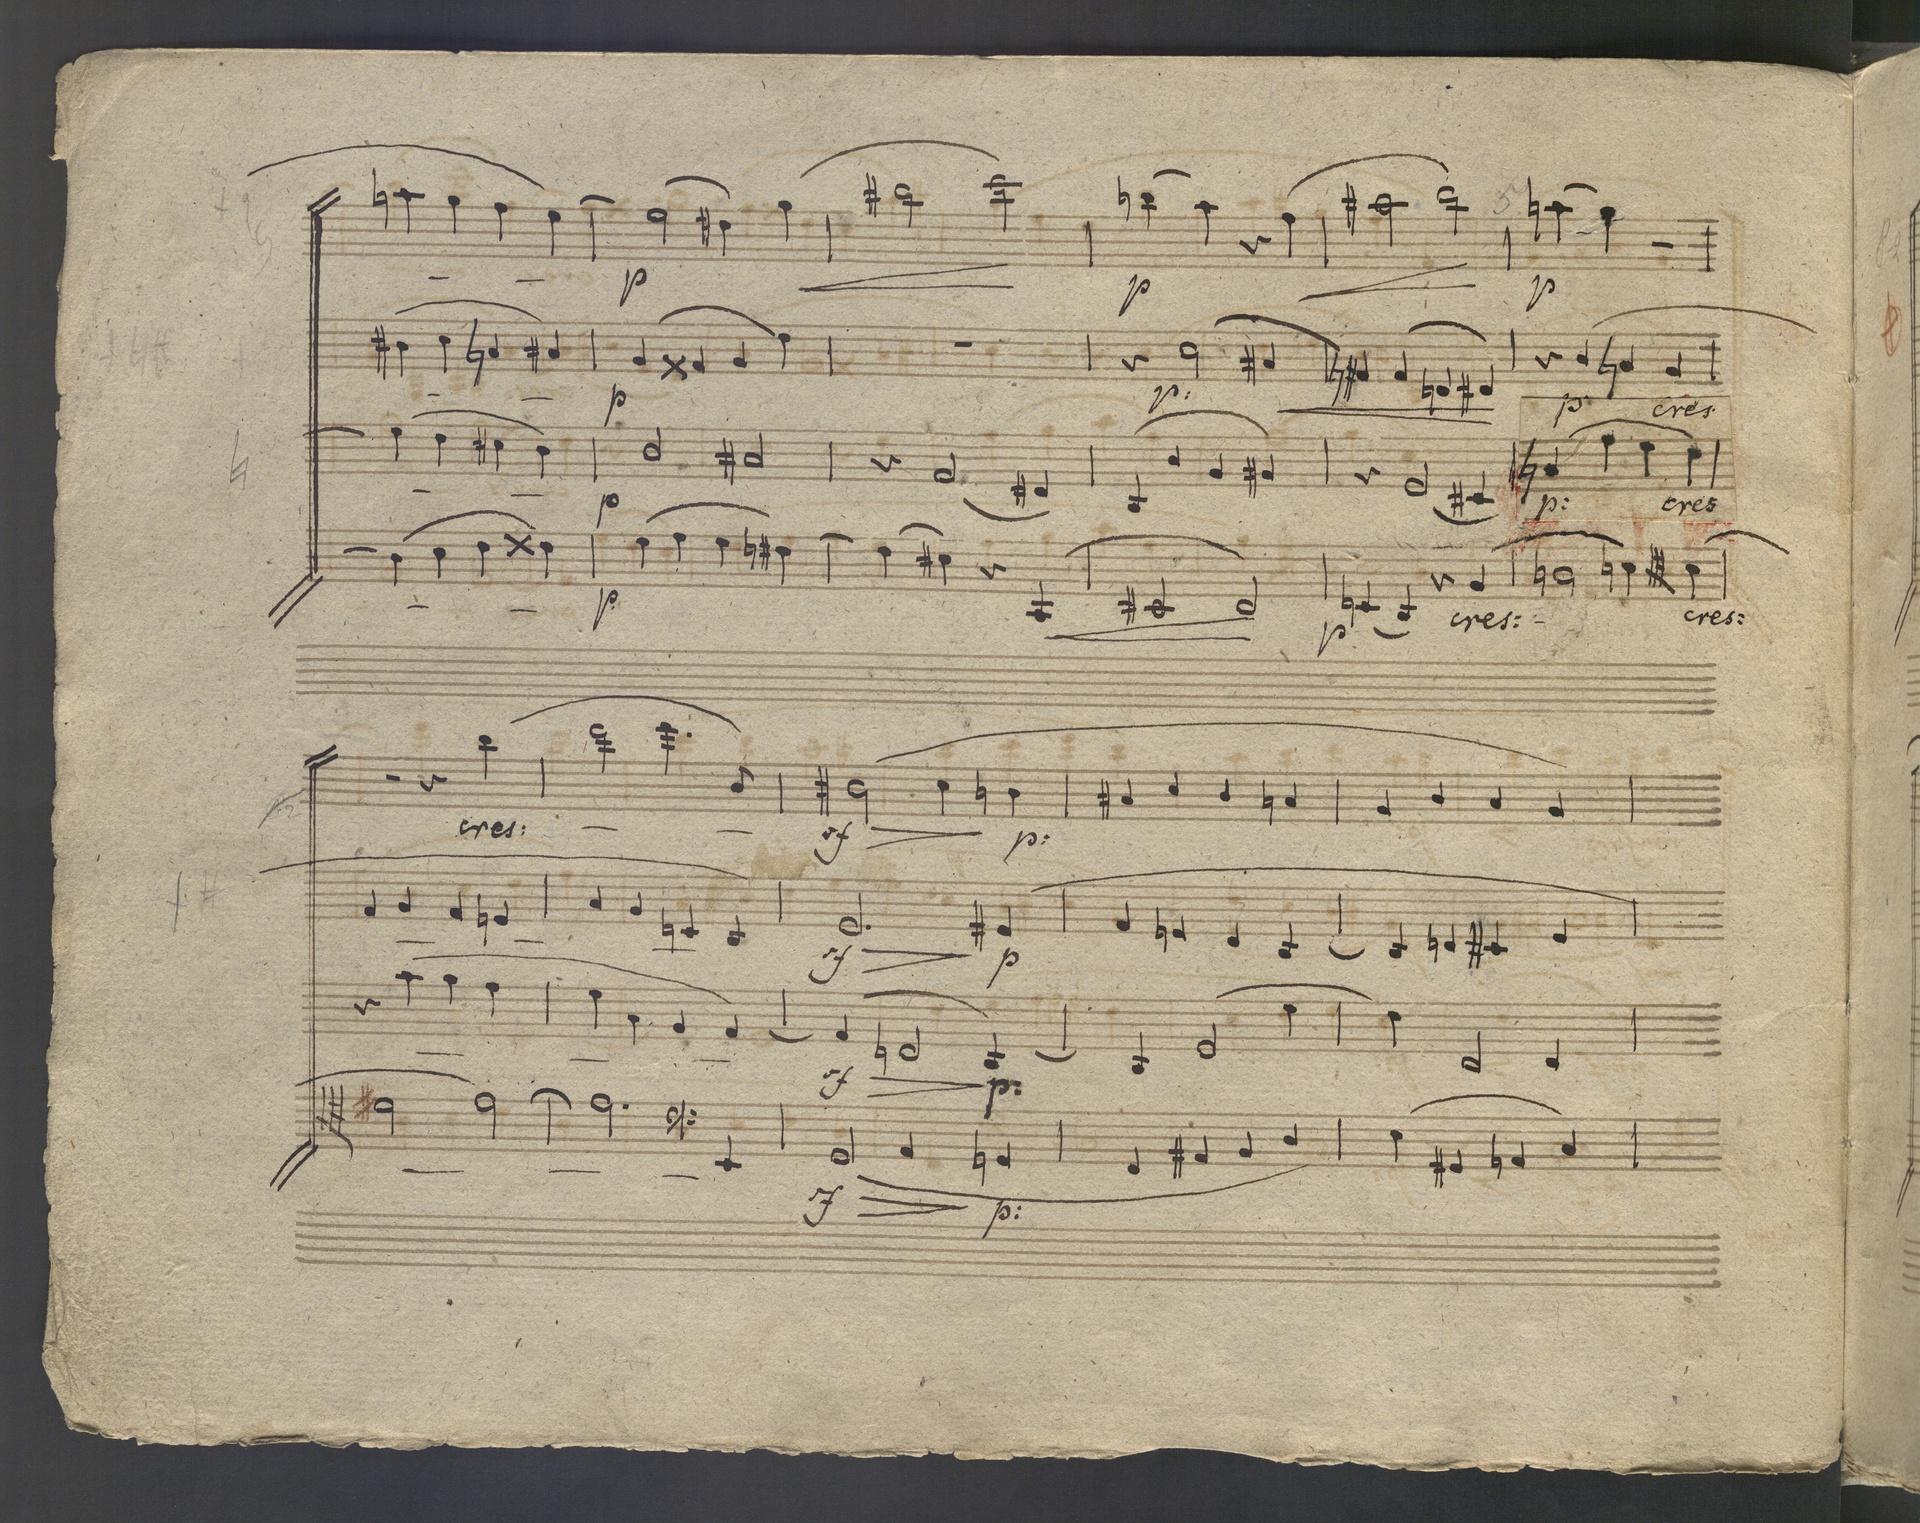 p p p
p p: p cres.
p p: cres
p. p cres: - cres:
cres: sf p:
sf p
sf p:
sf p: